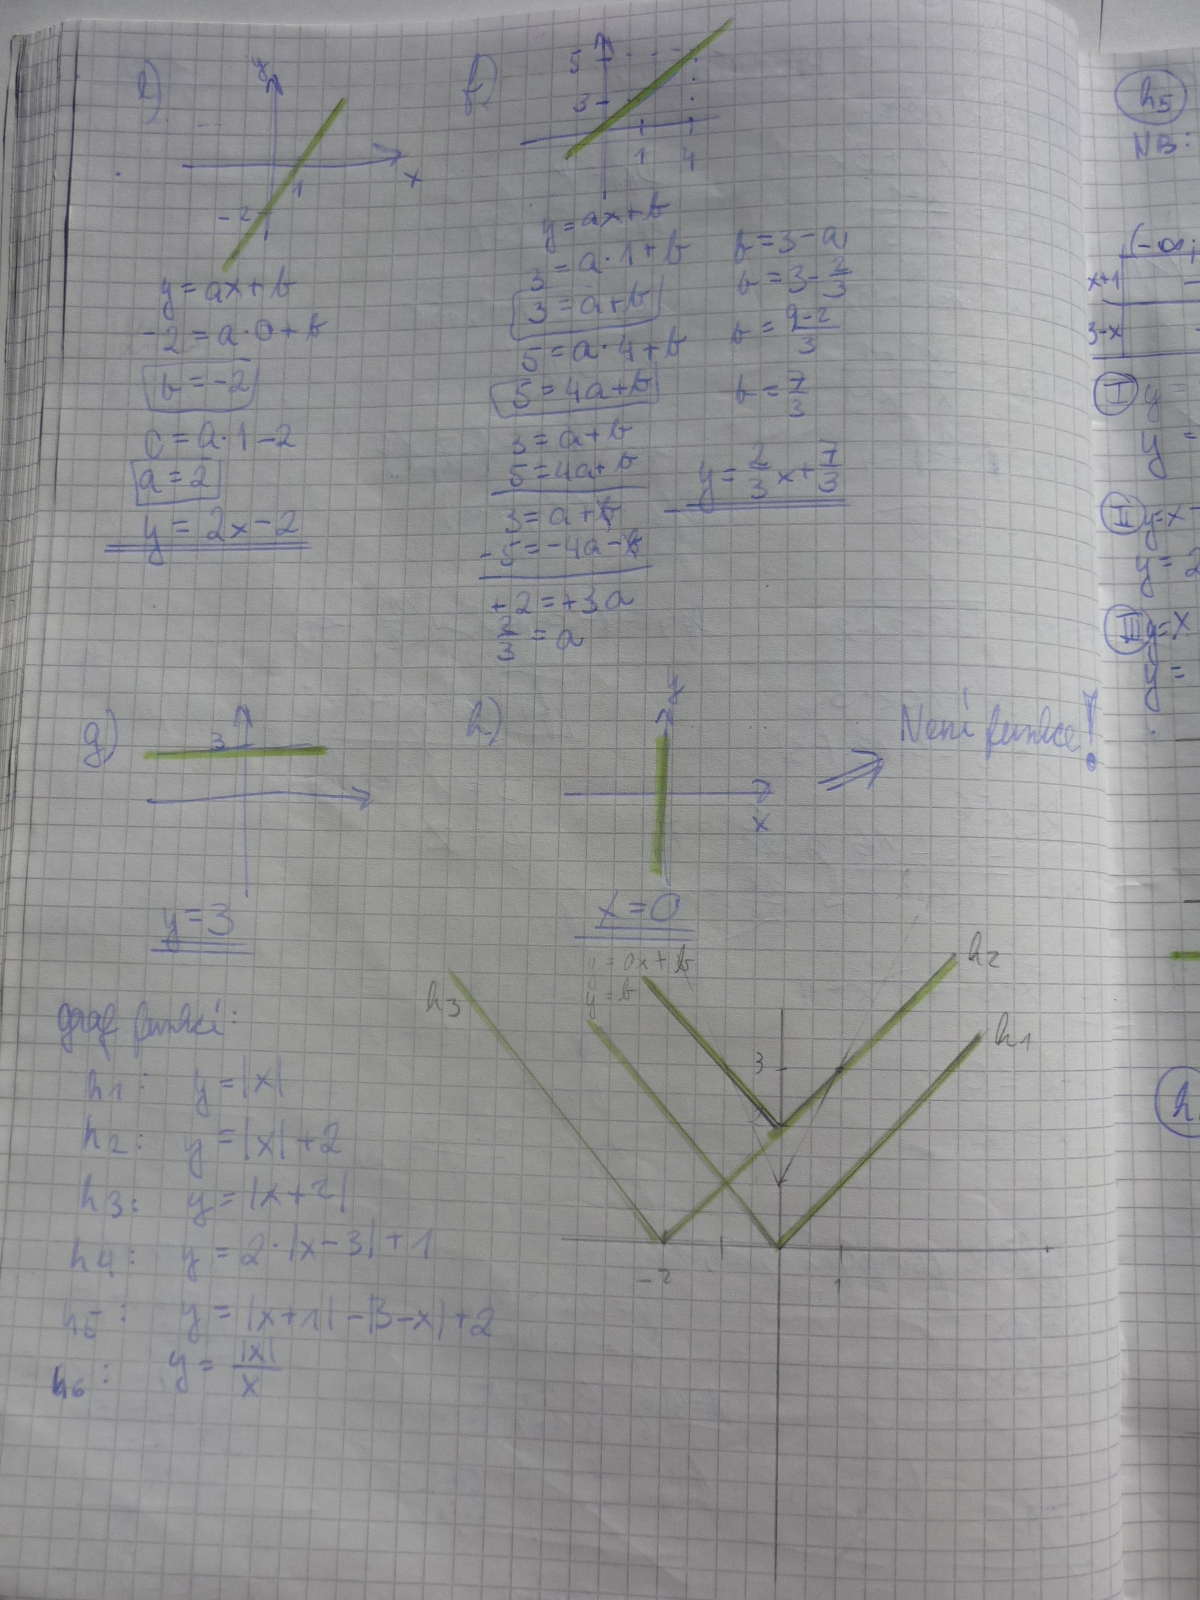 e)
y
1
x
-2
y = ax + b
-2 = a·0 + b
b = -2
0 = a·1 - 2
a = 2
y = 2x - 2
f)
5
3
1 4
y = ax + b
3 = a·1 + b
3 = a + b
5 = a·4 + b
5 = 4a + b
3 = a + b
5 = 4a + b
3 = a + b
-5 = -4a - b
+2 = +3a
2/3 = a
b = 3 - a
b = 3 - 2/3
b = 9-2/3
b = 7/3
y = 2/3 x + 7/3
g)
3
y = 3
h)
y
x
Není funkce!
x = 0
y = 0x + b
y = b
graf funkcí:
h1: y = |x|
h2: y = |x| + 2
h3: y = |x+2|
h4: y = 2·|x-3| + 1
h5: y = |x+1| - |3-x| + 2
h6: y = |x|/x
h3
h2
h1
3
-2
1
h5
NB:
(-∞;
x+1 -
3-x
I y =
y =
II y = x
y = 2
III y = x
y =
h